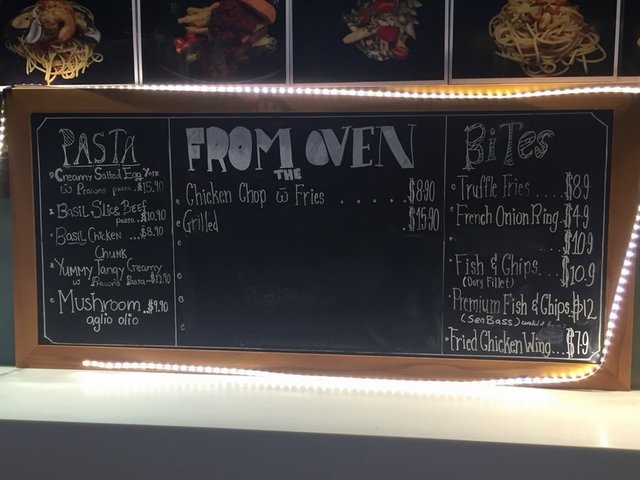 PASTA
Creamy Salted Egg York
w̄ Prawns pasta..$15.90
Basil Slice Beef
pasta..$10.90
Basil Chicken ...$8.90
Chunk
Yummy Tangy Creamy
w̄ Prawns Pasta..$12.90
Mushroom..$9.90
aglio olio
FROM THE OVEN
Chicken Chop w̄ Fries .....$8.90
Grilled .$15.90
BITES
Truffle Fries.....$8.9
French Onion Ring.$4.9
$10.9
Fish & Chips...$10.9
(Dory Fillet)
Premium Fish & Chips.$12
(Sea Bass)
Fried Chicken Wing...$7.9